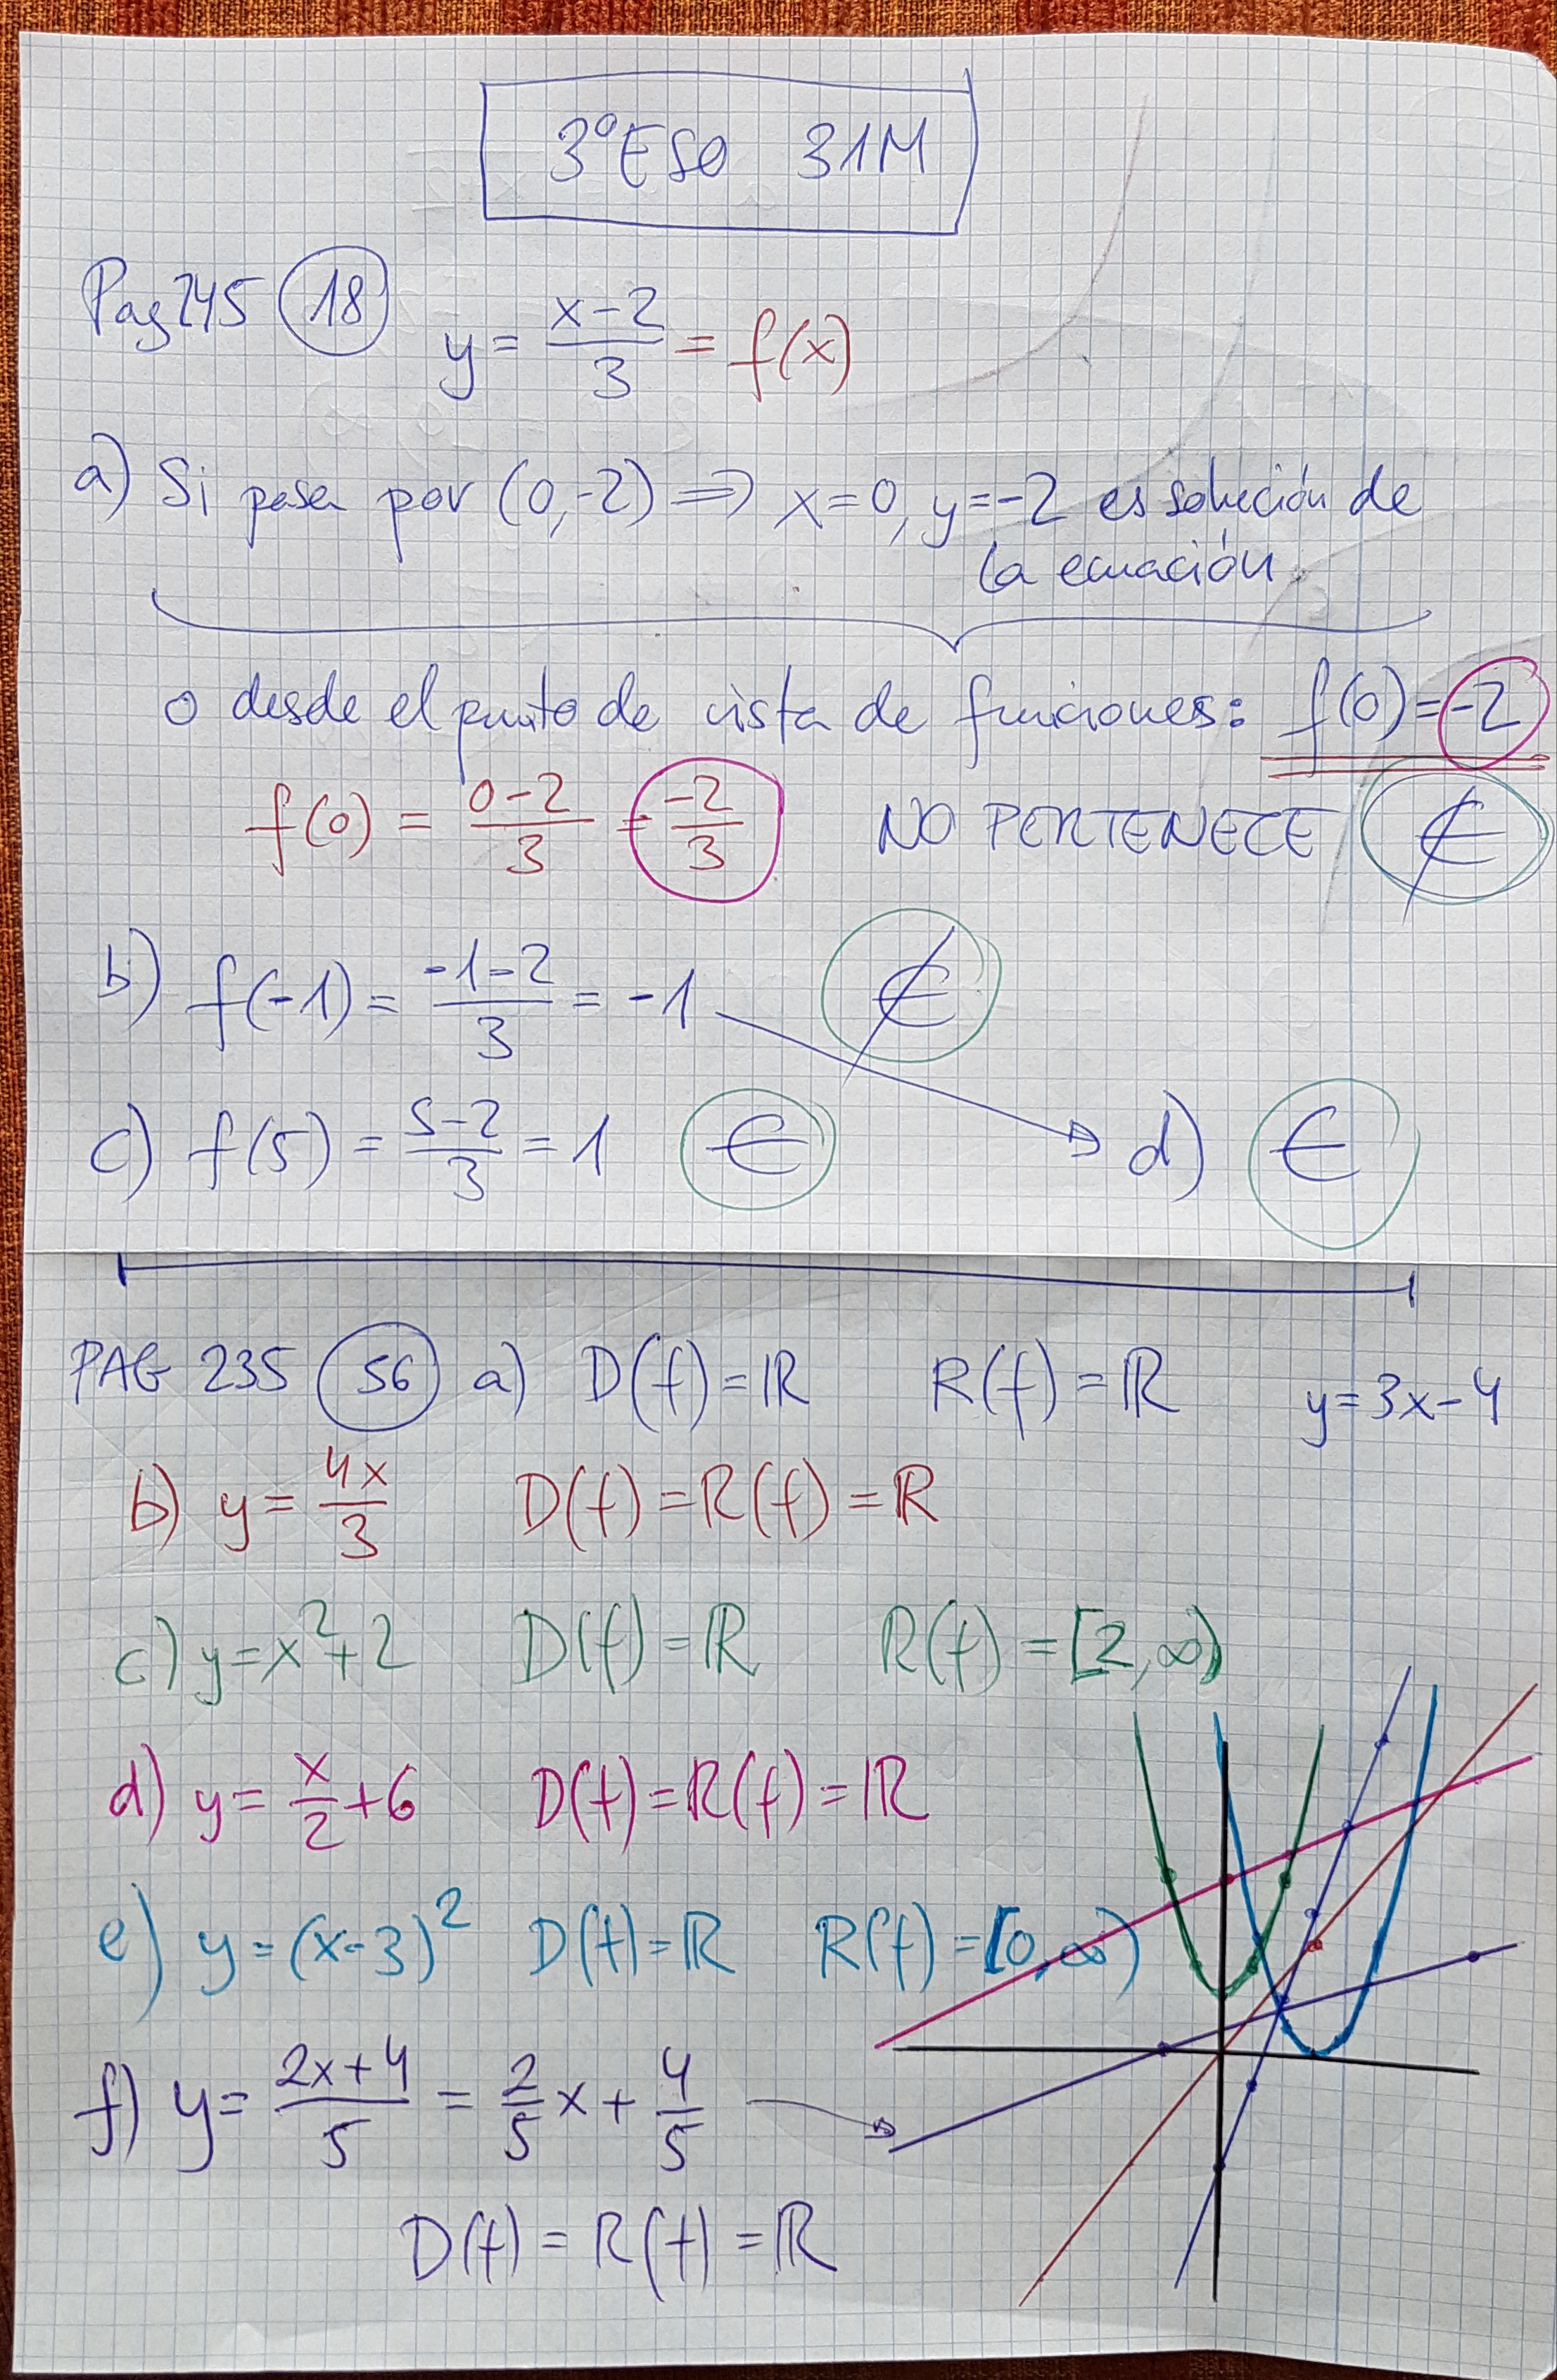 3ºESO 31M
Pag 245 18 y = (x-2)/3 = f(x)
a) Si pasa por (0,-2) ⇒ x=0, y=-2 es solución de
la ecuación
o desde el punto de vista de funciones: f(0)=-2
f(0) = (0-2)/3 = -2/3 NO PERTENECE ∉
b) f(-1) = (-1-2)/3 = -1 ∉
c) f(5) = (5-2)/3 = 1 ∈ d) ∈
PAG 235 56 a) D(f)=ℝ R(f)=ℝ y=3x-4
b) y = 4x/3 D(f)=R(f)=ℝ
c) y=x²+2 D(f)=ℝ R(f)=[2,∞)
d) y = x/2+6 D(f)=R(f)=ℝ
e) y=(x-3)² D(f)=ℝ R(f)=[0,∞)
f) y = (2x+4)/5 = 2/5 x + 4/5
D(f)=R(f)=ℝ